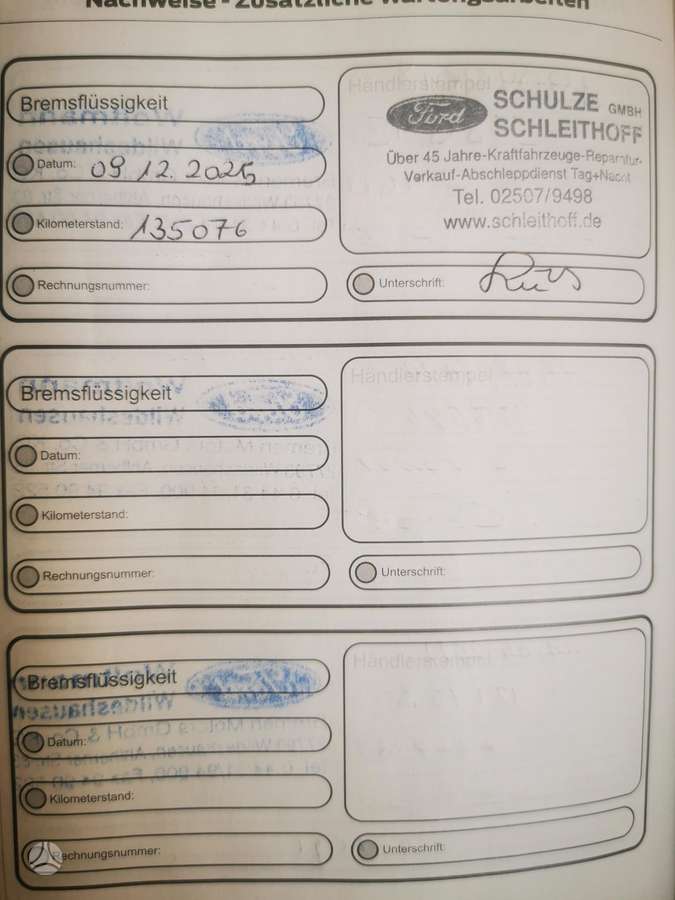 Nachweise - Zusätzliche Wartungsarbeiten
Bremsflüssigkeit
Datum: 09.12.2025
Kilometerstand: 135076
Rechnungsnummer:
Händlerstempel
Ford
SCHULZE GMBH
SCHLEITHOFF
Über 45 Jahre-Kraftfahrzeuge-Reparatur-
Verkauf-Abschleppdienst Tag+Nacht
Tel. 02507/9498
www.schleithoff.de
Unterschrift:
Bremsflüssigkeit
Datum:
Kilometerstand:
Rechnungsnummer:
Händlerstempel
Unterschrift:
Bremsflüssigkeit
Datum:
Kilometerstand:
Rechnungsnummer:
Händlerstempel
Unterschrift: